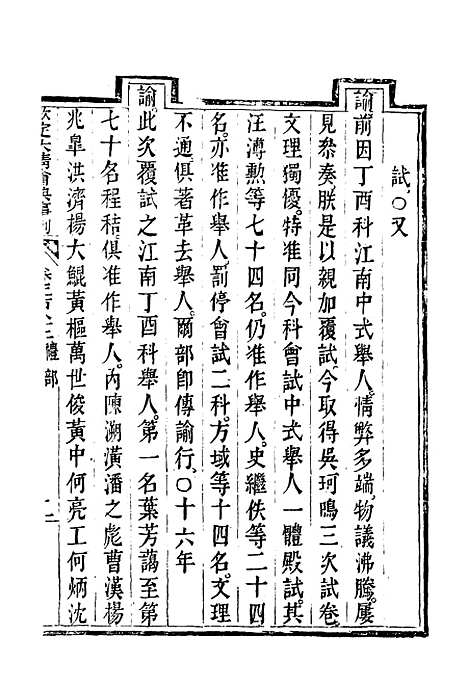 試。○又
諭前因丁酉科江南中式舉人。情弊多端。物議沸騰。屢
見叅奏。朕是以親加覆試。今取得吳珂鳴三次試卷。
文理獨優。特准同今科會試中式舉人一體殿試。其
汪溥勲等七十四名。仍准作舉人。史繼佚等二十四
名。亦准作舉人。罰停會試二科。方域等十四名。文理
不通。俱著革去舉人。爾部卽傳諭行。○十六年
諭此次覆試之江南丁酉科舉人。第一名葉芳藹至第
七十名程秸。俱准作舉人。內陳溯潢潘之彪曹漢楊
兆皐洪濟楊大鯤黃樞萬世俊黃中何亮工何炳沈
欽定大清會典事例 禮部